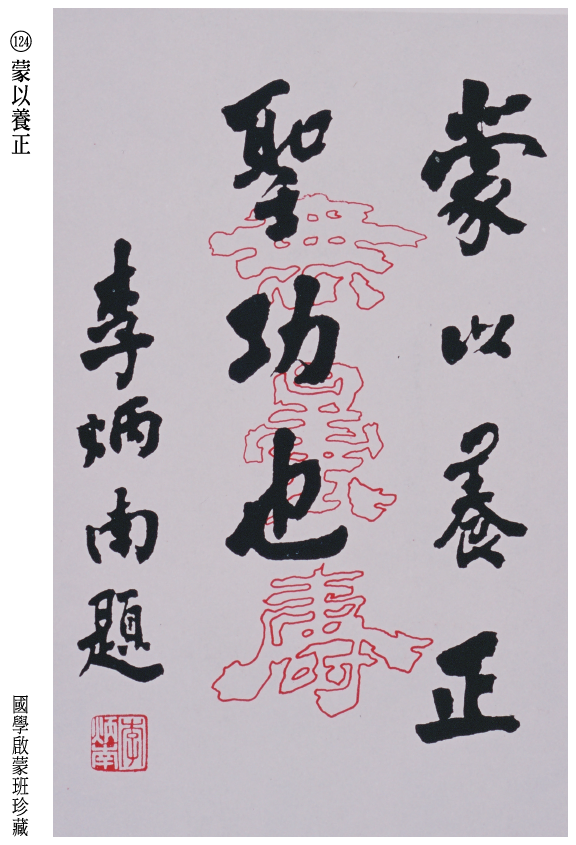 124 蒙以養正
蒙以養正
聖功也
李炳南題
無量壽
李炳南
國學啟蒙班珍藏